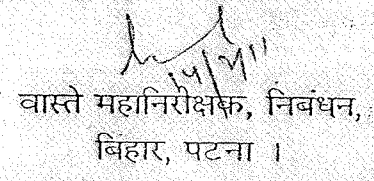 वास्ते महानिरीक्षक, निबंधन,
बिहार, पटना ।